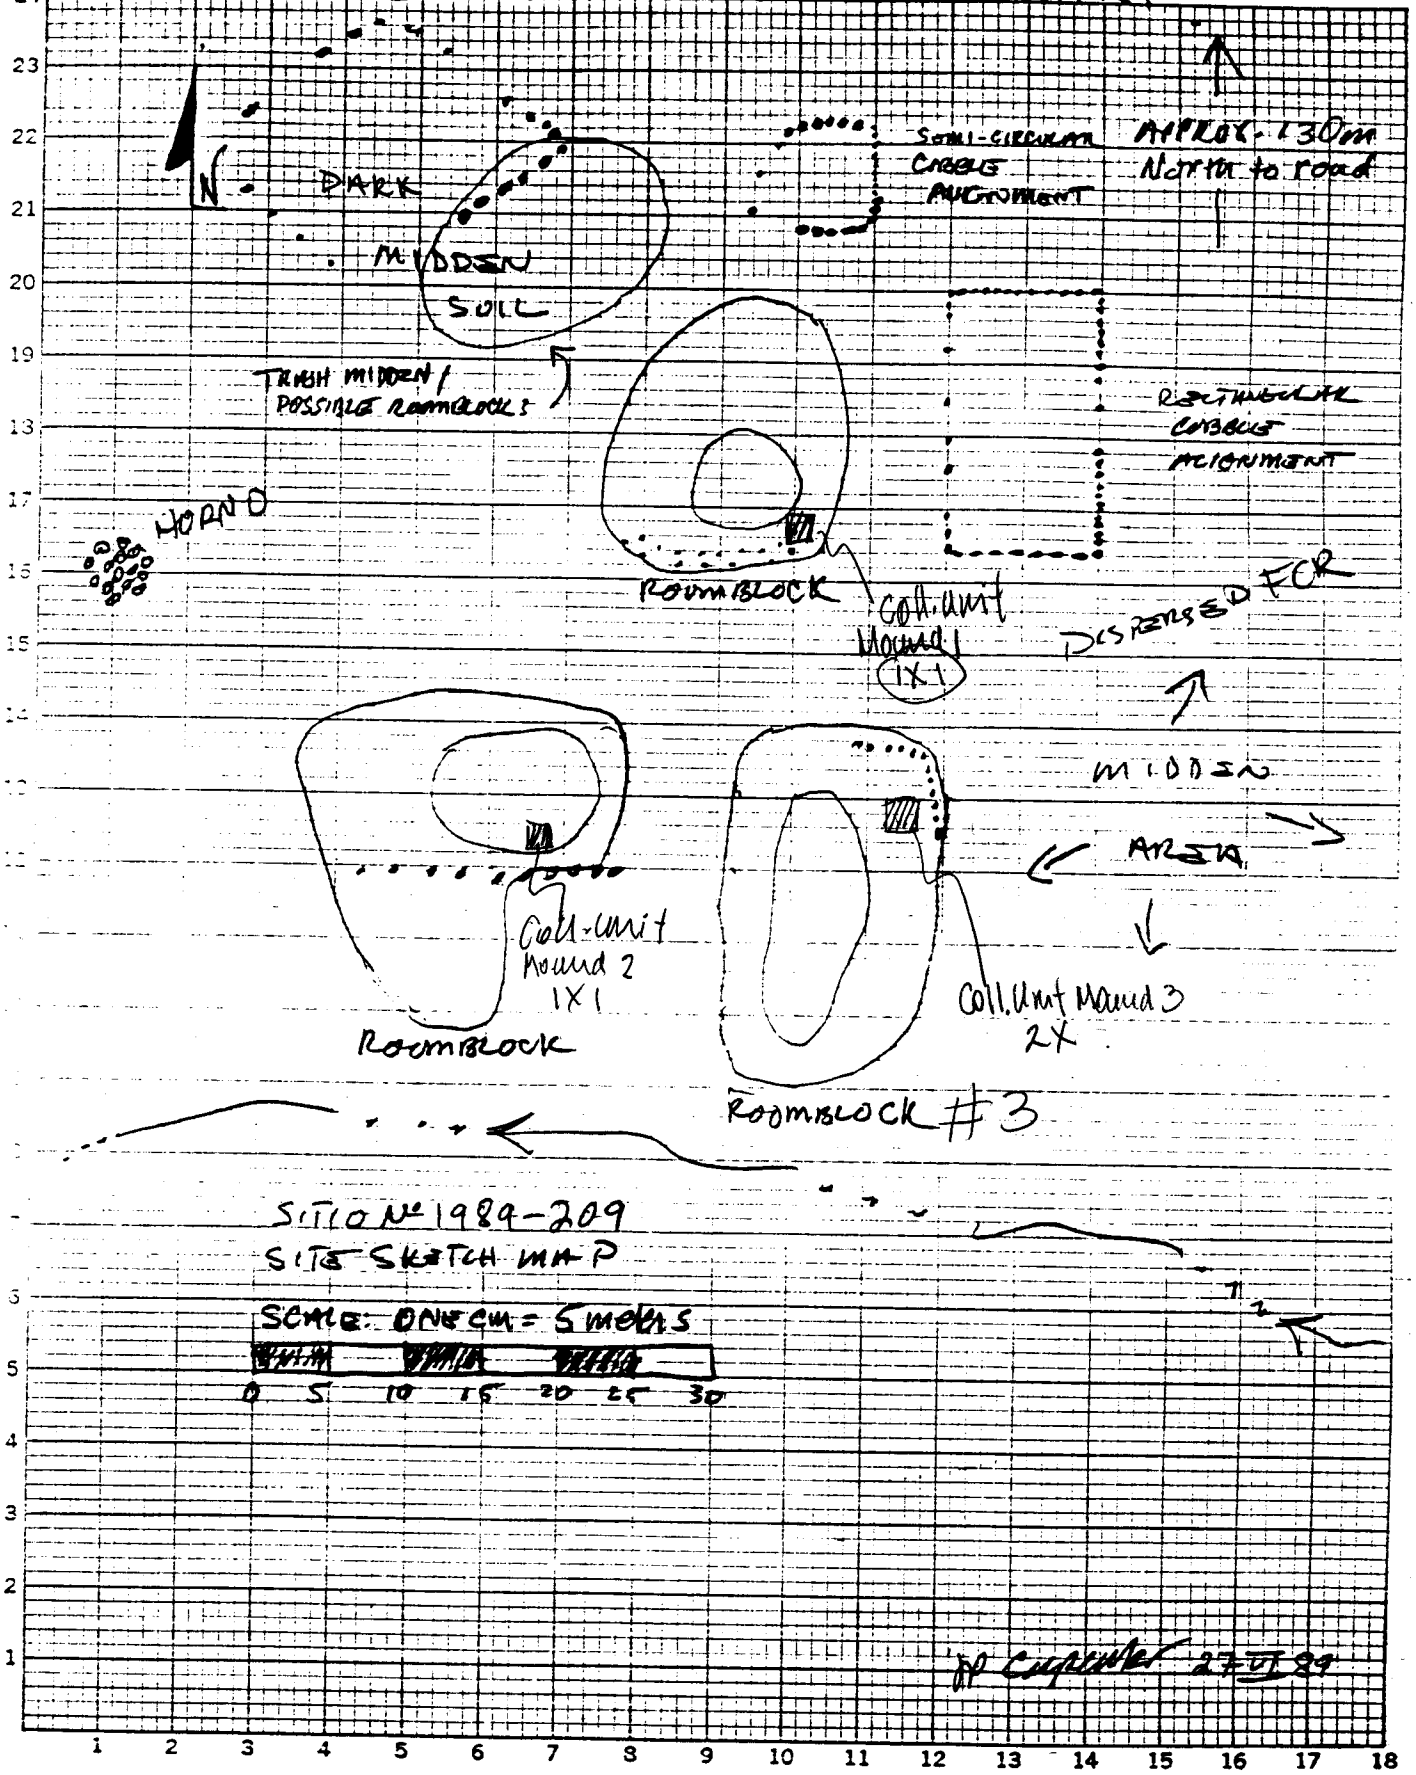 23
22
21
20
19
13
17
15
14
5
4
3
2
1
N
DARK
MIDDEN
SOIL
TRASH MIDDEN/
POSSIBLE ROOMBLOCK?
SEMI-CIRCULAR
COBBLE
ALIGNMENT
APPROX. 130m
North to road
RECTANGULAR
COBBLE
ALIGNMENT
HORNO
ROOMBLOCK
Coll. Unit
Mound 1
1X1
DISPERSED FCR
MIDDEN
AREA
Coll. Unit
Mound 2
1X1
ROOMBLOCK
Coll. Unit Mound 3
2X
ROOMBLOCK #3
SITIO Nº 1989-209
SITE SKETCH MAP
SCALE: ONE CM = 5 meters
0 5 10 15 20 25 30
JP Carpenter 27 VI 89
1 2 3 4 5 6 7 8 9 10 11 12 13 14 15 16 17 18